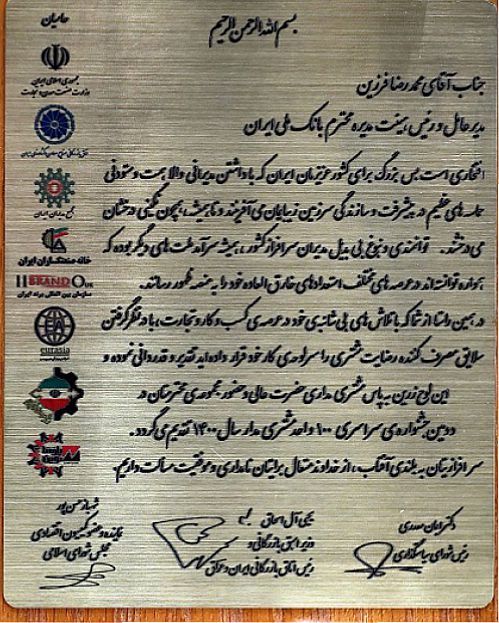 بسم الله الرحمن الرحیم
حامیان
جمهوری اسلامی ایران
وزارت صنعت، معدن و تجارت
مجمع مدیران ایران
خانه صنعتکاران ایران
IIBRAND
سازمان بین المللی برند ایران
EA
eurasia
جناب آقای محمدرضا فرزین
مدیرعامل و رئیس هیئت مدیره محترم بانک ملی ایران
افتخاری است بس بزرگ برای کشور عزیزمان ایران که با داشتن مدیرانی والا همت و ستودنی
حماسه های عظیم در پیشرفت و سازندگی سرزمین زیبایمان می آفرینند و تا همیشه، همچون نگینی درخشان
می درخشند. توانمندی و نبوغ بی بدیل مدیران سرافراز کشور، همیشه سرآمد ملت های دیگر بوده که
همواره توانسته اند در عرصه های مختلف استعدادهای خارق العاده خود را به منصه ظهور رسانند.
در همین راستا از شما که با تلاش های بی شائبه ی خود در عرصه ی کسب و کار و تجارت، با در نظر گرفتن
سلایق مصرف کننده رضایت مشتری را سرلوحه ی کار خود قرار داده اید تقدیر و قدردانی نموده و
این لوح زرین به پاس مشتری مداری حضرت عالی و حضور مجموعه ی محترمتان در
دومین جشنواره ی سراسری ۱۰۰ واحد مشتری مدار سال ۱۴۰۰ تقدیم می گردد.
سرافرازیتان به بلندی آفتاب، از خداوند متعال برایتان نامداری و موفقیت مسألت داریم.
دکتر
رئیس شورای سیاستگذاری
یحیی آل اسحاق
وزیر اسبق بازرگانی و
رئیس اتاق بازرگانی ایران و عراق
شهباز حسن پور
نماینده و عضو کمیسیون اقتصادی
مجلس شورای اسلامی